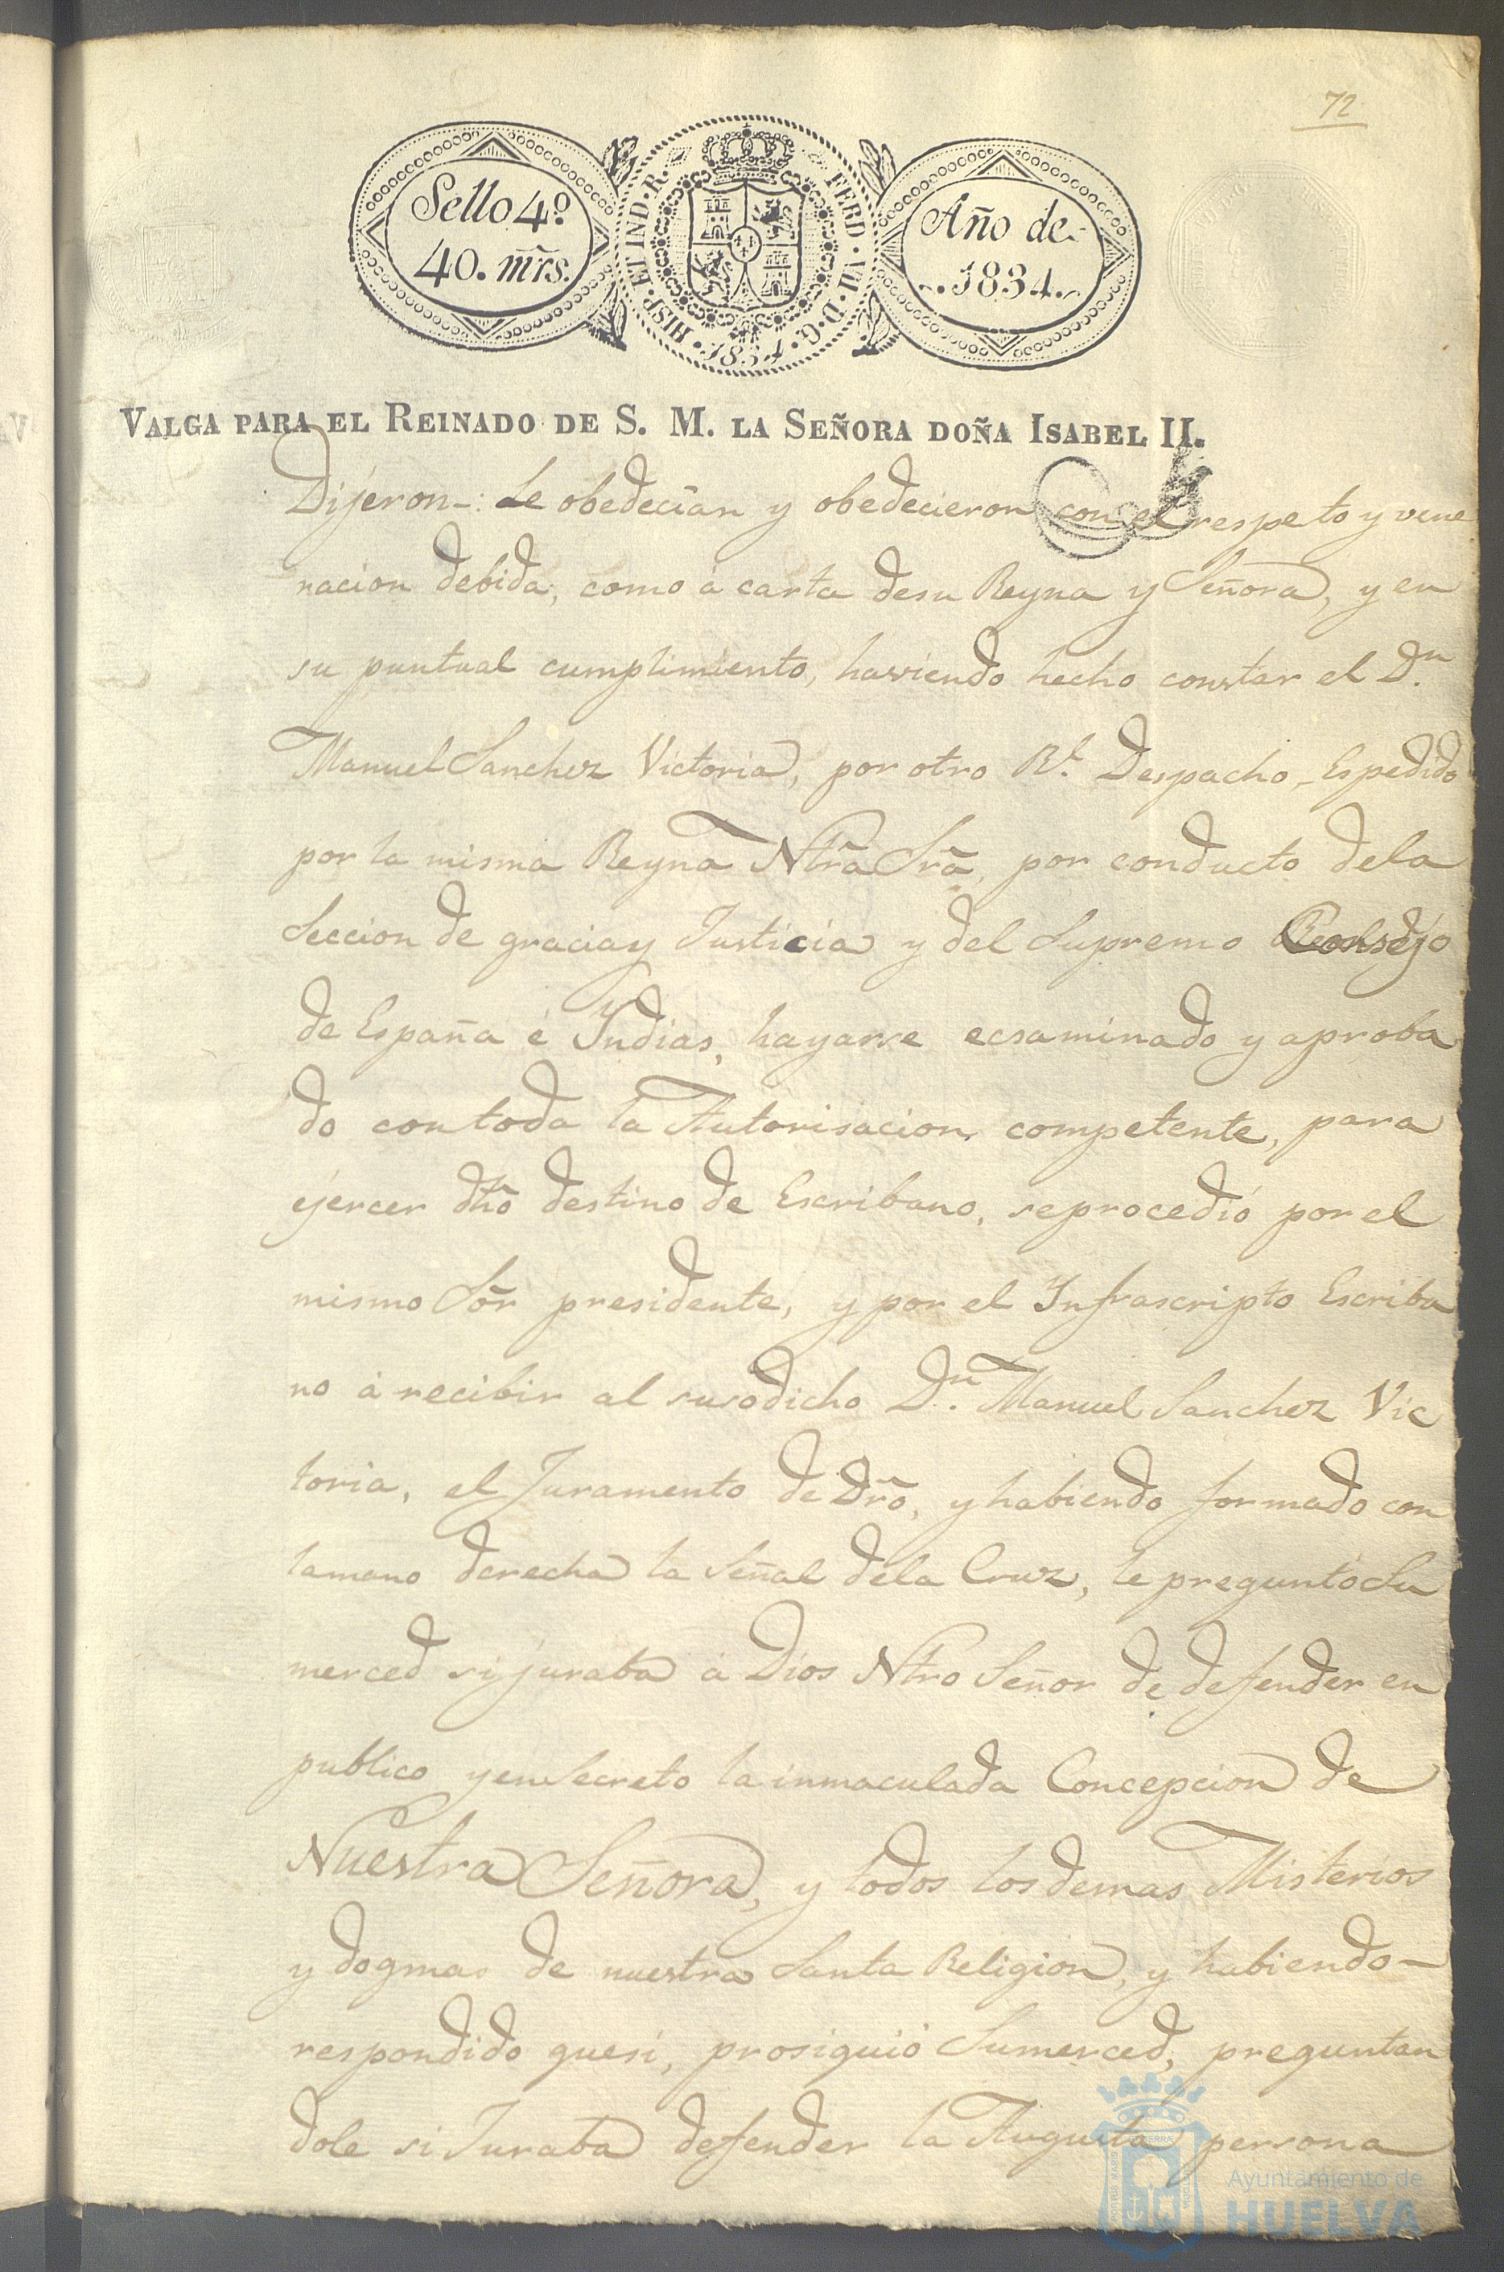 72
Sello 4º
40. mrs.
HISP. ET IND. R.
FERD. VII. D. G.
.1834.
Año de
1834.
VALGA PARA EL REINADO DE S. M. LA SEÑORA DOÑA ISABEL II.
Dijeron-: Le obedecian y obedecieron con el respeto y vene
nacion debida; como á carta desu Reyna y Señora, y en
su puntual cumplimiento, haviendo hecho constar el Dn.
Manuel Sanchez Victoria, por otro Rl. Despacho, Espedido
por la misma Reyna Ntrã Srã, por conducto dela
Seccion de gracia y Justicia y del Supremo Consejo
de España é Yndias, hayarse ecsaminado y aproba
do contoda la Autorisacion competente, para
ejercer dho destino de Escribano, seprocedió por el
mismo Sõr presidente, y por el Ynfrascripto Escriba
no á recibir al susodicho Dn. Manuel Sanchez Vic
toria, el Juramento de Drõ, y habiendo formado con
lamano derecha la Señal dela Cruz, le preguntó Su
merced si juraba á Dios Ntro Señor de defender en
publico yensecreto la inmaculada Concepcion de
Nuestra Señora, y todos losdemas Misterios
y dogmas de nuestra Santa Religion, y habiendo-
respondido quesi, prosiguió Sumerced, preguntan
dole si Juraba defender la Augusta persona
Ayuntamiento de
HUELVA